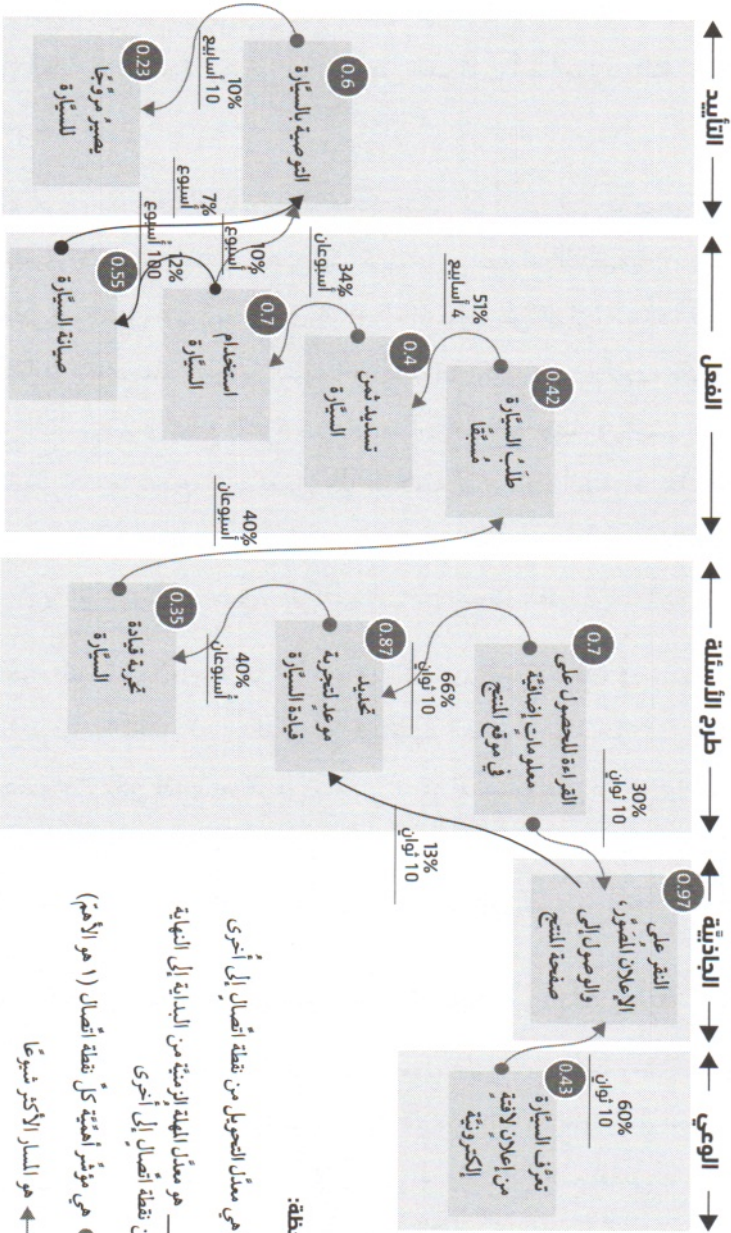 الوعي
الجاذبيّة
طرح الأسئلة
الفعل
التأييد
0.43
تعرُّف السيّارة
من إعلان لافتةٍ
إلكترونيّة
60%
10 ثوانٍ
0.97
النقر على
الإعلان المُصَوَّر،
والوصول إلى
صفحة المنتج
30%
10 ثوانٍ
13%
10 ثوانٍ
0.7
القراءة للحصول على
معلوماتٍ إضافيّة
في موقع المنتج
66%
10 ثوانٍ
0.87
تحديد
موعدٍ لتجربة
قيادة السيّارة
40%
أسبوعان
0.35
تجربة قيادة
السيّارة
40%
أسبوعان
0.42
طَلَبُ السيّارة
مُسبَّقًا
51%
4 أسابيع
0.4
تسديد ثمن
السيّارة
34%
أسبوعان
0.7
استخدام
السيّارة
10%
أسبوع
12%
100 أسبوع
0.55
صيانة السيّارة
7%
أسبوع
0.6
التوصية بالسيّارة
10%
10 أسابيع
0.23
يصيرُ مروِّجًا
للسيّارة
هي معدَّل التحويل من نقطة اتّصالٍ إلى أُخرى
هو معدَّل المهلة الزمنيّة من البداية إلى النهاية
نقطة اتّصالٍ إلى أُخرى
هي مؤشّر أهمّيّة كلّ نقطة اتّصال (١ هو الأهمّ)
هو المسار الأكثر شيوعًا